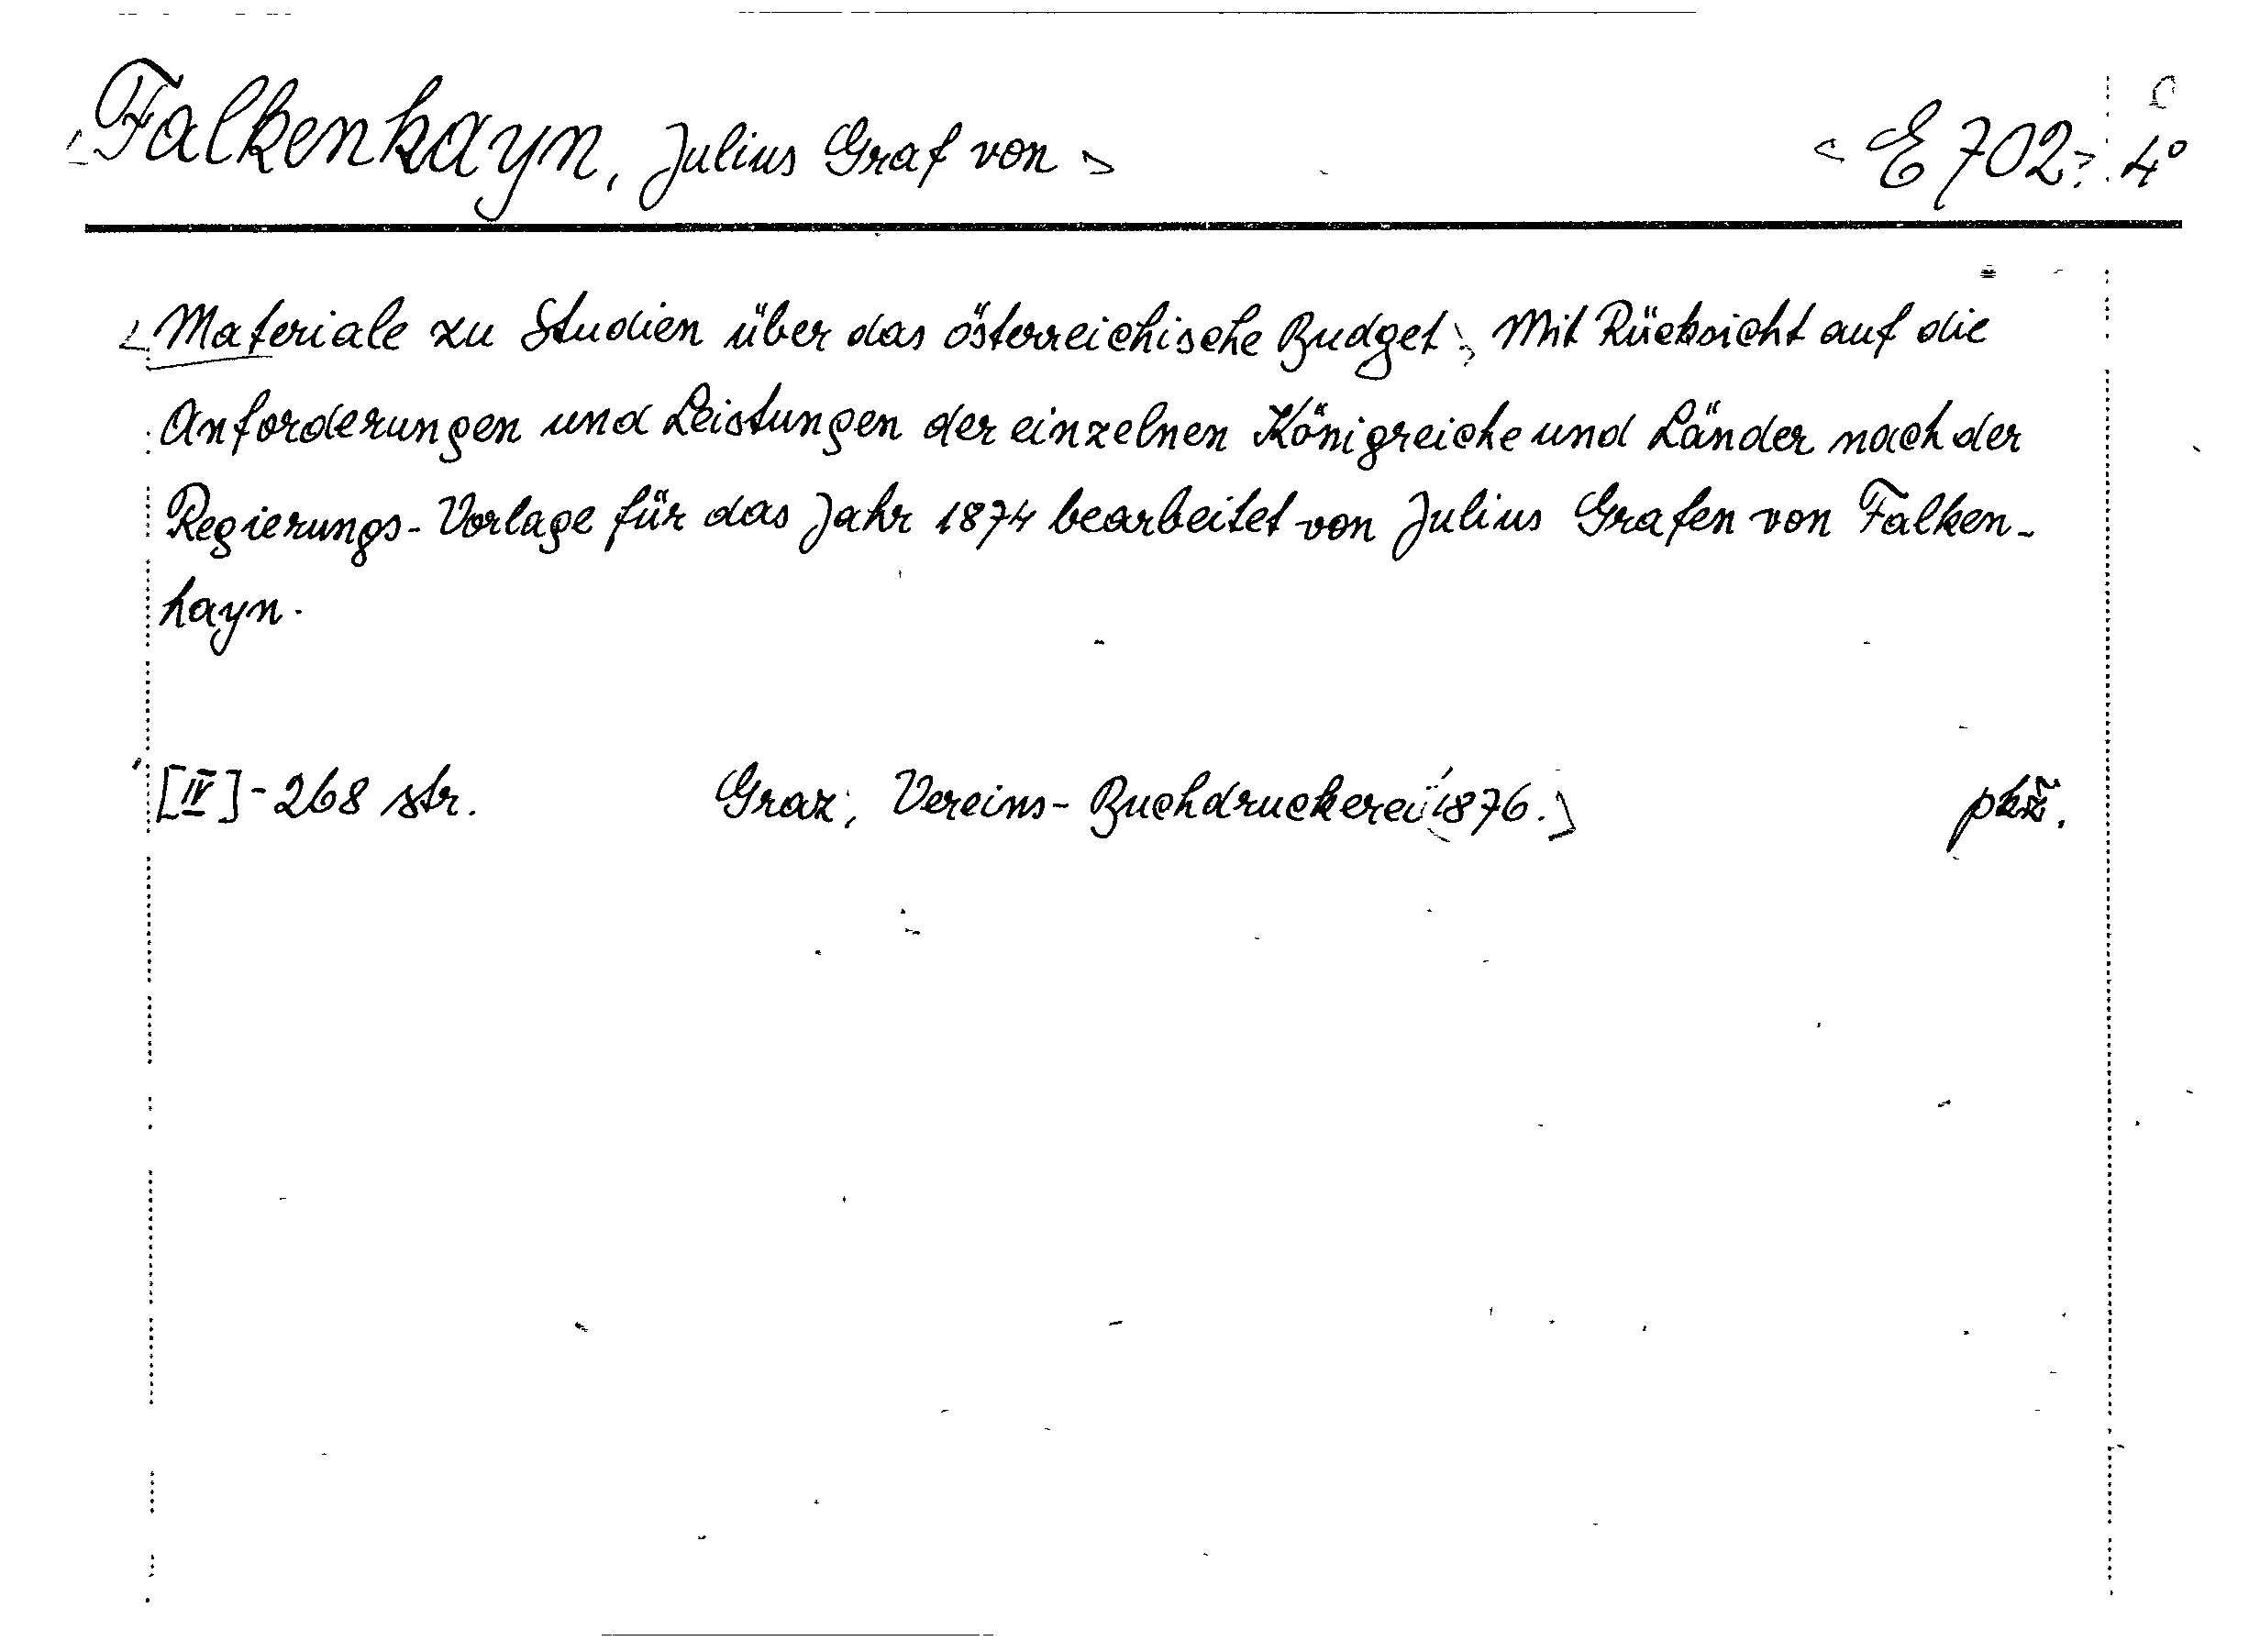 <Falkenhayn, Julius Graf von> <E 702> 4°
<Materiale zu Studien über das österreichische Budget> Mit Rücksicht auf die
Anforderungen und Leistungen der einzelnen Königreiche und Länder nach der
Regierungs-Vorlage für das Jahr 1874 bearbeitet von Julius Grafen von Falken-
hayn.
[IV]-268 str. Graz, Vereins-Buchdruckerei <1876.> pkž.